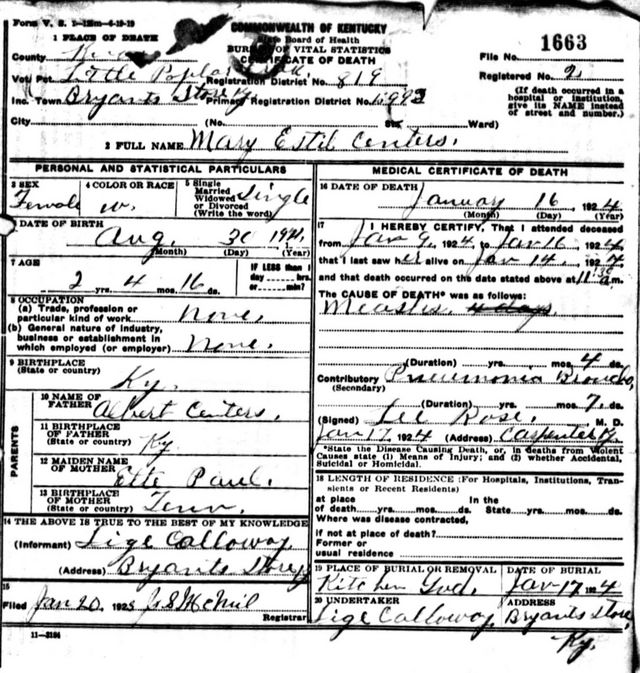 Form V. S. 1-125m-6-19-19
COMMONWEALTH OF KENTUCKY
State Board of Health
BUREAU OF VITAL STATISTICS
CERTIFICATE OF DEATH
1 PLACE OF DEATH
County
Vot. Pct. Little Poplar Creek Registration District No. 819
Inc. Town Bryants Store Ky Primary Registration District No.
City (No. St. Ward)
File No. 1663
Registered No. 2
(If death occurred in a
hospital or institution,
give its NAME instead
of street and number.)
2 FULL NAME Mary Estil Centers.
PERSONAL AND STATISTICAL PARTICULARS
3 SEX Female
4 COLOR OR RACE W.
5 Single
Married
Widowed
or Divorced
(Write the word) Single
DATE OF BIRTH
Aug. 30 1921
(Month) (Day) (Year)
7 AGE
2 yrs. 4 mos. 16 ds.
IF LESS than 1
day hrs.
or min.?
8 OCCUPATION
(a) Trade, profession or
particular kind of work None.
(b) General nature of industry,
business or establishment in
which employed (or employer) None.
9 BIRTHPLACE
(State or country) Ky.
PARENTS
10 NAME OF
FATHER Albert Centers.
11 BIRTHPLACE
OF FATHER
(State or country) Ky
12 MAIDEN NAME
OF MOTHER Ette Paul.
13 BIRTHPLACE
OF MOTHER
(State or country) Tenn.
14 THE ABOVE IS TRUE TO THE BEST OF MY KNOWLEDGE
(Informant) Lige Calloway
(Address) Bryants Store Ky
15
Filed Jan 20. 1923 J S McNeil
Registrar
11-3184
MEDICAL CERTIFICATE OF DEATH
16 DATE OF DEATH
January 16, 1924
(Month) (Day) (Year)
17 I HEREBY CERTIFY, That I attended deceased
from Jan 9, 1924, to Jan 16 1924
that I last saw her alive on Jan 14. 1924
and that death occurred on the date stated above at 11 30 a.m.
The CAUSE OF DEATH* was as follows:
Measles. 4 days.
(Duration) yrs. mos. 4 ds.
Contributory Pneumonia Broncho,
(Secondary)
(Duration) yrs. mos. 7. ds.
(Signed) Lee Rose. M. D.
Jan 17, 1924 (Address) Carpenter Ky.
*State the Disease Causing Death, or, in deaths from Violent
Causes state (1) Means of Injury; and (2) whether Accidental,
Suicidal or Homicidal.
18 LENGTH OF RESIDENCE (For Hospitals, Institutions, Tran-
sients or Recent Residents)
at place In the
of death yrs. mos. ds. State yrs. mos. ds.
Where was disease contracted,
if not at place of death?
Former or
usual residence
19 PLACE OF BURIAL OR REMOVAL
Kitchen Gvd.
DATE OF BURIAL
Jan 17 1924
20 UNDERTAKER
Lige Calloway,
ADDRESS
Bryants Store
Ky.